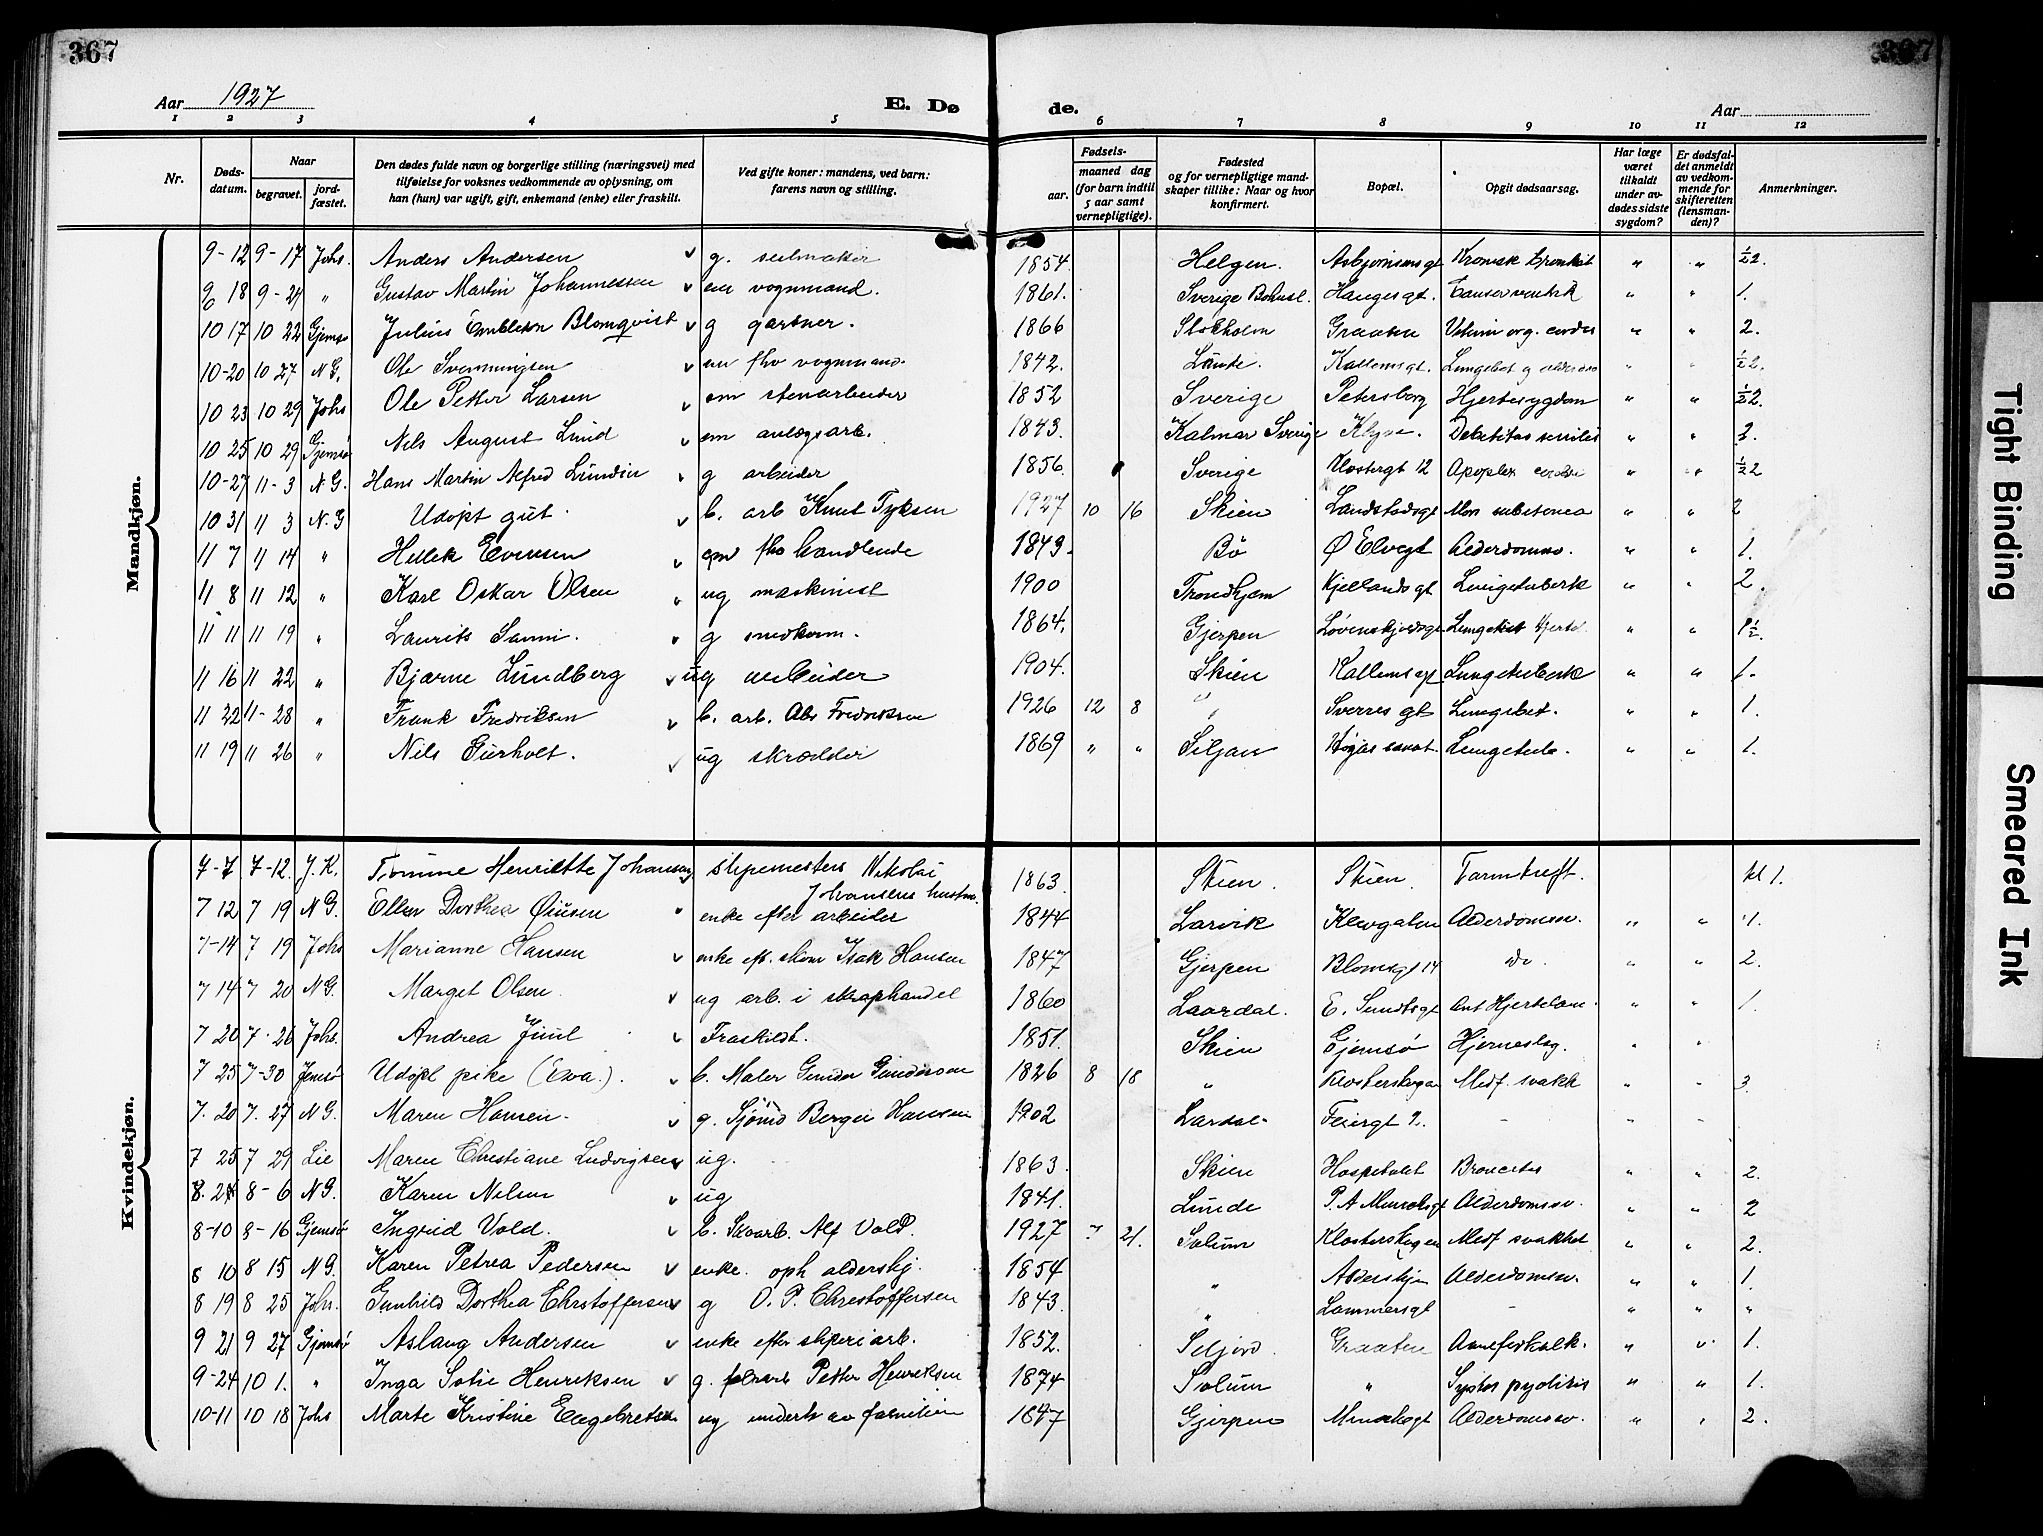 367
367
Aar 1927
E. Dø de.
Aar
1 2 3 4 5 6 7 8 9 10 11 12
Nr.
Døds-datum.
Naar
begravet.
jord-fæstet.
Den dødes fulde navn og borgerlige stilling (næringsvei) med tilføielse for voksnes vedkommende av oplysning, om han (hun) var ugift, gift, enkemand (enke) eller fraskilt.
Ved gifte koner: mandens, ved barn: farens navn og stilling.
Fødsels-
aar.
maaned dag (for barn indtil 5 aar samt vernepligtige).
Fødested og for vernepligtige mand-skaper tillike: Naar og hvor konfirmert.
Bopæl.
Opgit dødsaarsag.
Har læge været tilkaldt under av-dødes sidste sygdom?
Er dødsfal-det anmeldt av vedkom-mende for skifteretten (lensman-den)?
Anmerkninger.
Mandkjøn.
9-12 9-17 Johs. Anders Andersen g. seilmaker 1854 Helgen. Asbjørnsensgt Kronisk bronkit " " ½2.
9 18 9-24 " Gustav Martin Johannessen em vognmand. 1861. Sverige Bohusl. Haugesgt. " " 1.
10 17 10 22 Gjemsø Julius Blomqvist g gartner. 1866 Stokholm Graaten " " 2.
10-20 10 27 N G. Ole Svenningsen em fhv vognmand 1842. Lunde. Kallemsgt. " " ½2.
10 23 10 29 Johs Ole Petter Larsen em stenarbeider 1852 Sverige Petersborg Hjertesygdom " " ½2.
10 25 10 29 Gjemsø Nils August Lund em anlægsarb. 1843. Kalmar Sverige Klyve. Debilitas senilis " " 2.
10-27 11-3 N G. Hans Martin Alfred Lundin g arbeider 1856. Sverige Klostergt 12 Apoplex " " ½2
10 31 11 3 N. G Udøpt gut. b. arb Knut Tyksen 1927 10 16 Skien Landstadsgt Mors subitanea " " 2
11 7 11 14 " Hellek Evensen em fhv handlende 1843. Bø Ø Elvegt Alderdomssv. " " 1.
11 8 11 12 " Karl Oskar Olsen ug maskinist 1900 Trondhjem Kjellandsgt Lungetuberk " " 2.
11 11 11 19 " Laurits Sanni. g snedkerm. 1864. Gjerpen Løvenskjoldsgt " " 1½.
11 16 11 22 " Bjarne Lundberg ug arbeider 1904. Skien Kallemsgt Lungetuberk " " 1.
11 22 11-28 " Frank Fredriksen b. arb. Fredriksen 1926 12 8 " Sverresgt Lungebet. " " 1.
11 19 11 26 " Nils Gurholt. ug skrædder 1869 " " Siljan Lungetub. " " 1.
Kvindekjøn.
7-7 7-12. J. K. Henriette Johansen støpemesters Nikolai
Johansens hustru. 1863. Skien. Skien. Tarmkreft. kl 1.
7 12 7 19 N G. Ellen Dorthea Olsen enke efter arbeider 1844 Larvik Klevgaten Alderdomssv. " " 1.
7-14 7 19 Johs Marianne Hansen enke eft. skom Isak Hansen 1847 Gjerpen Blomsgt 14 do. " " 2.
7 14 7 20 N G. Marget Olsen ug arb. i skraphandel 1860 Laardal. E. Sundtsgt Ant Hjertelam. " " 1.
7 20 7. 26 Johs. Andrea Juul Fraskildt. 1851. Skien Gjemsø Hjerneslag. " "
7 25 7-30 Jemsø Udøpt pike (Eva.). b. Maler Gunder Gundersen 1826 8 18 " Klosterskogen Medf. svakh " " 3
7. 20 7. 27 N G. Maren Hansen. g. Sjømd Berger Hansen 1902 Lardal. Feiergt 9. - - -
7 25 7 29 Lie Maren Christiane Ludvigsen ug. 1863. Skien Hospitalet " " 2.
8. 2 8-6 N G. Karen Nilsen ug 1841. Lunde P. A Munchsgt Alderdomssv. " " 2
8-10 8-16 Gjemsø Ingrid Vold. b. Skoarb. Alf Vold. 1927 7 21. Solum Klosterskogen Medf svakhet " " 2.
8 10 8 15 N G. Karen Petrea Pedersen enke. oph aldershj. 1854 " Aldershjem Alderdomssv. " " 1.
8 19 8 25 Johs. Gunhild Dorthea Christoffersen g O. P. Christoffersen 1843. " Lammersgt - " " "
9 21 9 27 Gjemsø Aslaug Andersen enke efter sliperiarb. 1852. Seljord. Graaten Aareforkalk. " " 1.
9-24 10 1. " Inga Sofie Henriksen g. Petter Henriksen 1874 Solum " " " 1.
10-11 10 18 Johs Marte Kristine Engebretsen ug underh av familien 1847 Gjerpen Munchsgt Alderdomssv. " " 2.
Tight Binding
Smeared Ink